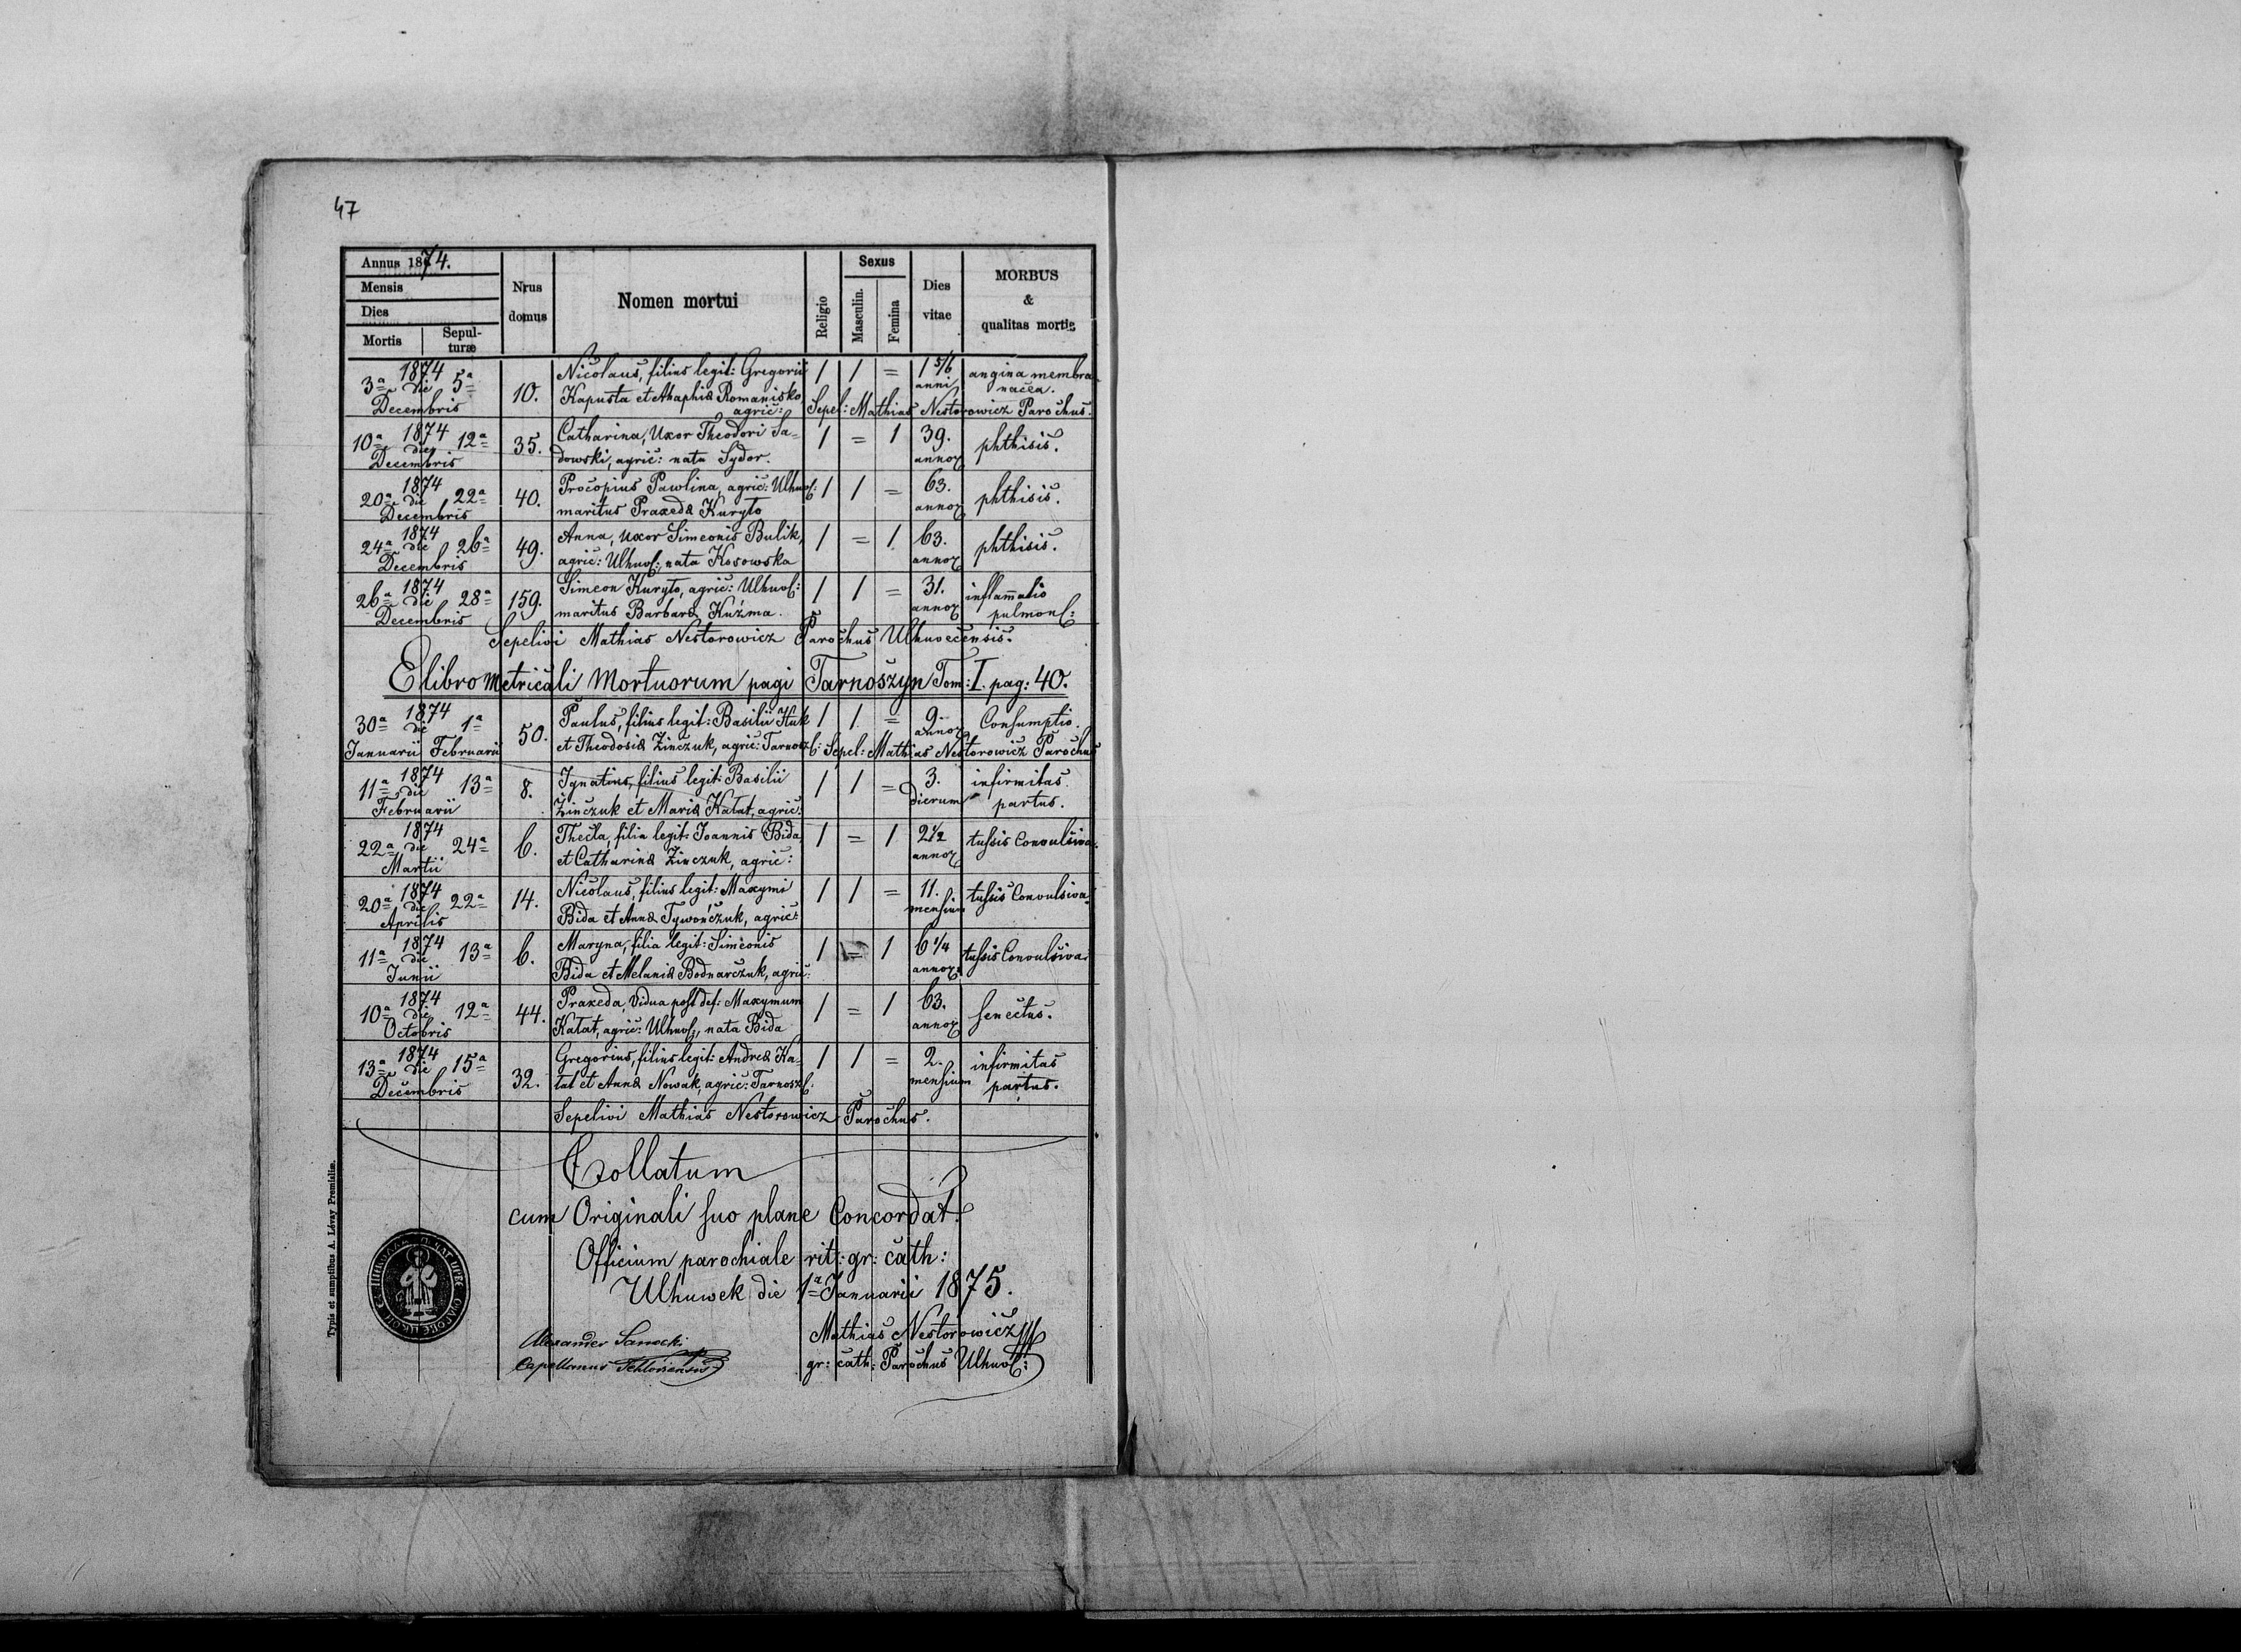 47
Annus 1874.
Mensis
Dies
Mortis Sepulturæ
Nrus domus
Nomen mortui
Religio
Sexus
Masculin.
Femina
Dies vitae
MORBUS & qualitas mortis
1874
3ª die 5ª Decembris 10. Nicolaus, filius legit: Gregorii 1 1 = 1 5/6 anni angina membra
Kapusta et Ahaphiæ Romanisko nacea.
agric: Sepel: Mathias Nestorowicz Parochus.
1874
10ª die 12ª Decembris 35. Catharina, Uxor Theodori Sa= 1 = 1 39. annor phthisis.
dowski, agric: nata Sydor.
1874
20ª die 22ª Decembris 40. Procopius Pawlina, agric: Uhnov: 1 1 = 63. annor phthisis.
maritus Praxedæ Kuryło
1874
24ª die 26ª Decembris 49. Anna, uxor Simeonis Bulik, 1 = 1 63. annor phthisis.
agric: Ulhuv: nata Kosowska
1874
26ª die 28ª Decembris 159. Simeon Kuryło, agric: Ulhuv: 1 1 = 31. annor inflam̄atio
maritus Barbaræ Kuźma. pulmon:
Sepelivi Mathias Nestorowicz Parochus Ulhuvecensis.
E libro metricali Mortuorum pagi Tarnoszyn Tom: I. pag: 40.
1874
30ª die 1ª 50. Paulus, filius legit: Basilii Huk 1 1 = 9. annor Consumptio.
Januarii Februarii et Theodosiæ Zinczuk, agric: Tarnosz: Sepel: Mathias Nestorowicz Parochus
1874
11ª die 13ª Februarii 8. Ignatius, filius legit: Basilii 1 1 = 3. dierum infirmitas
Zinczuk et Mariæ Kałat, agric: partus.
1874
22ª die 24ª Martii 6. Thecla, filia legit: Joannis Bida, 1 = 1 2½ annor tussis Convulsiva.
et Catharinæ Zinczuk, agric:
1874
20ª die 22ª Aprilis 14. Nicolaus, filius legit: Maxymi 1 1 = 11. mensium tussis Convulsiva
Bida et Annæ Tywończuk, agric:
1874
11ª die 13ª Junii 6. Maryna, filia legit: Simeonis 1 = 1 6 1/4 annor: tussis Convulsiva.
Bida et Melaniæ Bodnarczuk, agric:
1874
10ª die 12ª Octobris 44. Praxeda, Vidua post def: Maxymum 1 = 1 63. annor senectus.
Kałat, agric: Ulhuv:, nata Bida
1874
13ª die 15ª Decembris 32. Gregorius, filius legit: Andreæ Ka= 1 1 = 2. mensium infirmitas
łat et Annæ Nowak, agric: Tarnosz: partus.
Sepelivi Mathias Nestorowicz Parochus.
Collatum
cum Originali suo plane Concordat.
Officium parochiale rit: gr: cath:
Ulhuwek die 1ª Januarii 1875.
Mathias Nestorowicz
gr: cath: Parochus Ulhuv:
Alexander Sanocki
Capellanus
Typis et sumptibus A. Lévay Premisliæ.